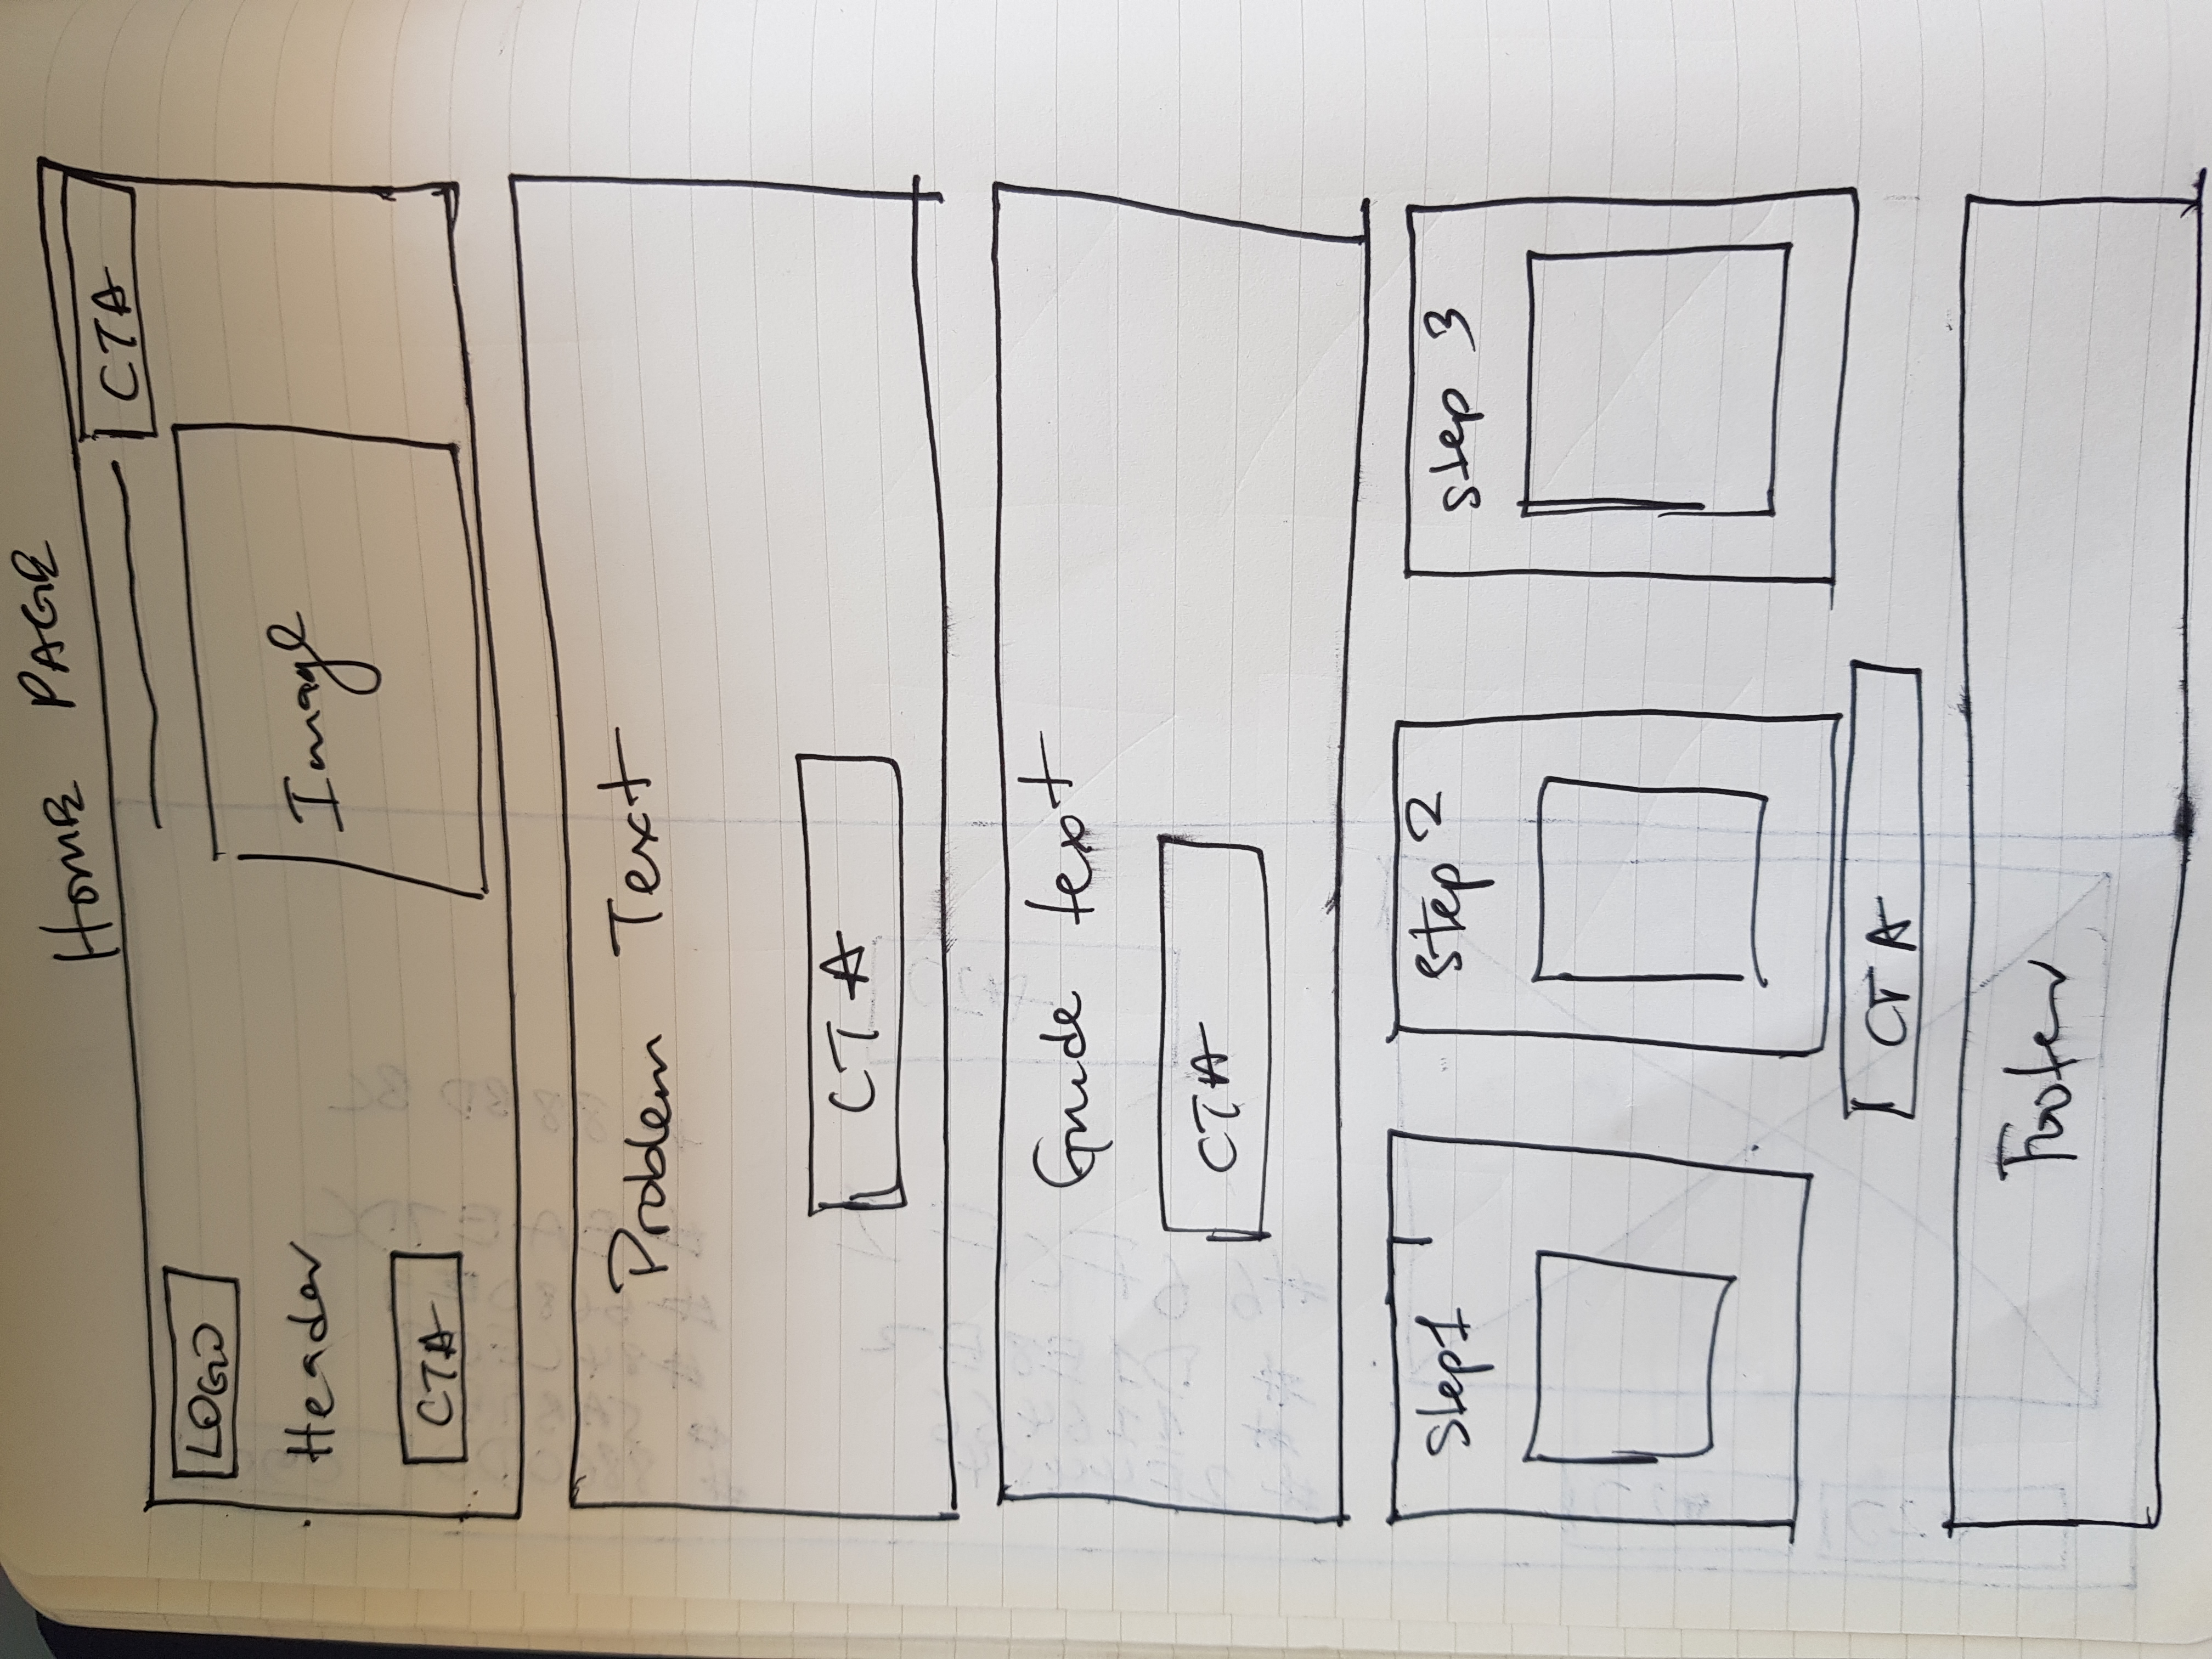 HOME PAGE
CTA
LOGO
Header
Image
CTA
Problem Text
CTA
Guide text
CTA
Step1
Step 2
step 3
CTA
Footer